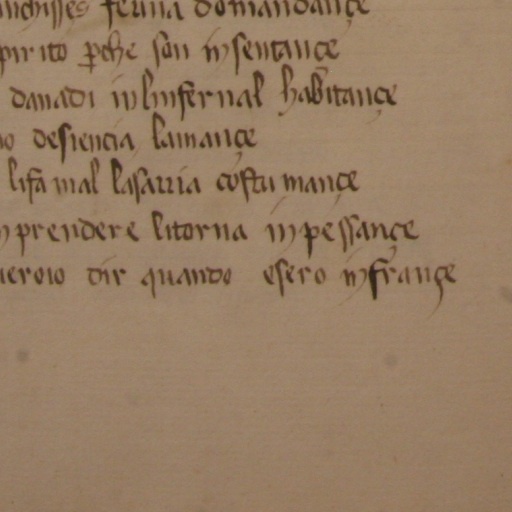 ferma domandançe
pirito ꝑche son in sentançe
danadi in linfernal habitançe
desiencia lamançe
lifa mal lasarria costumançe
prendere litorna in pessançe
dir quando esero in françe